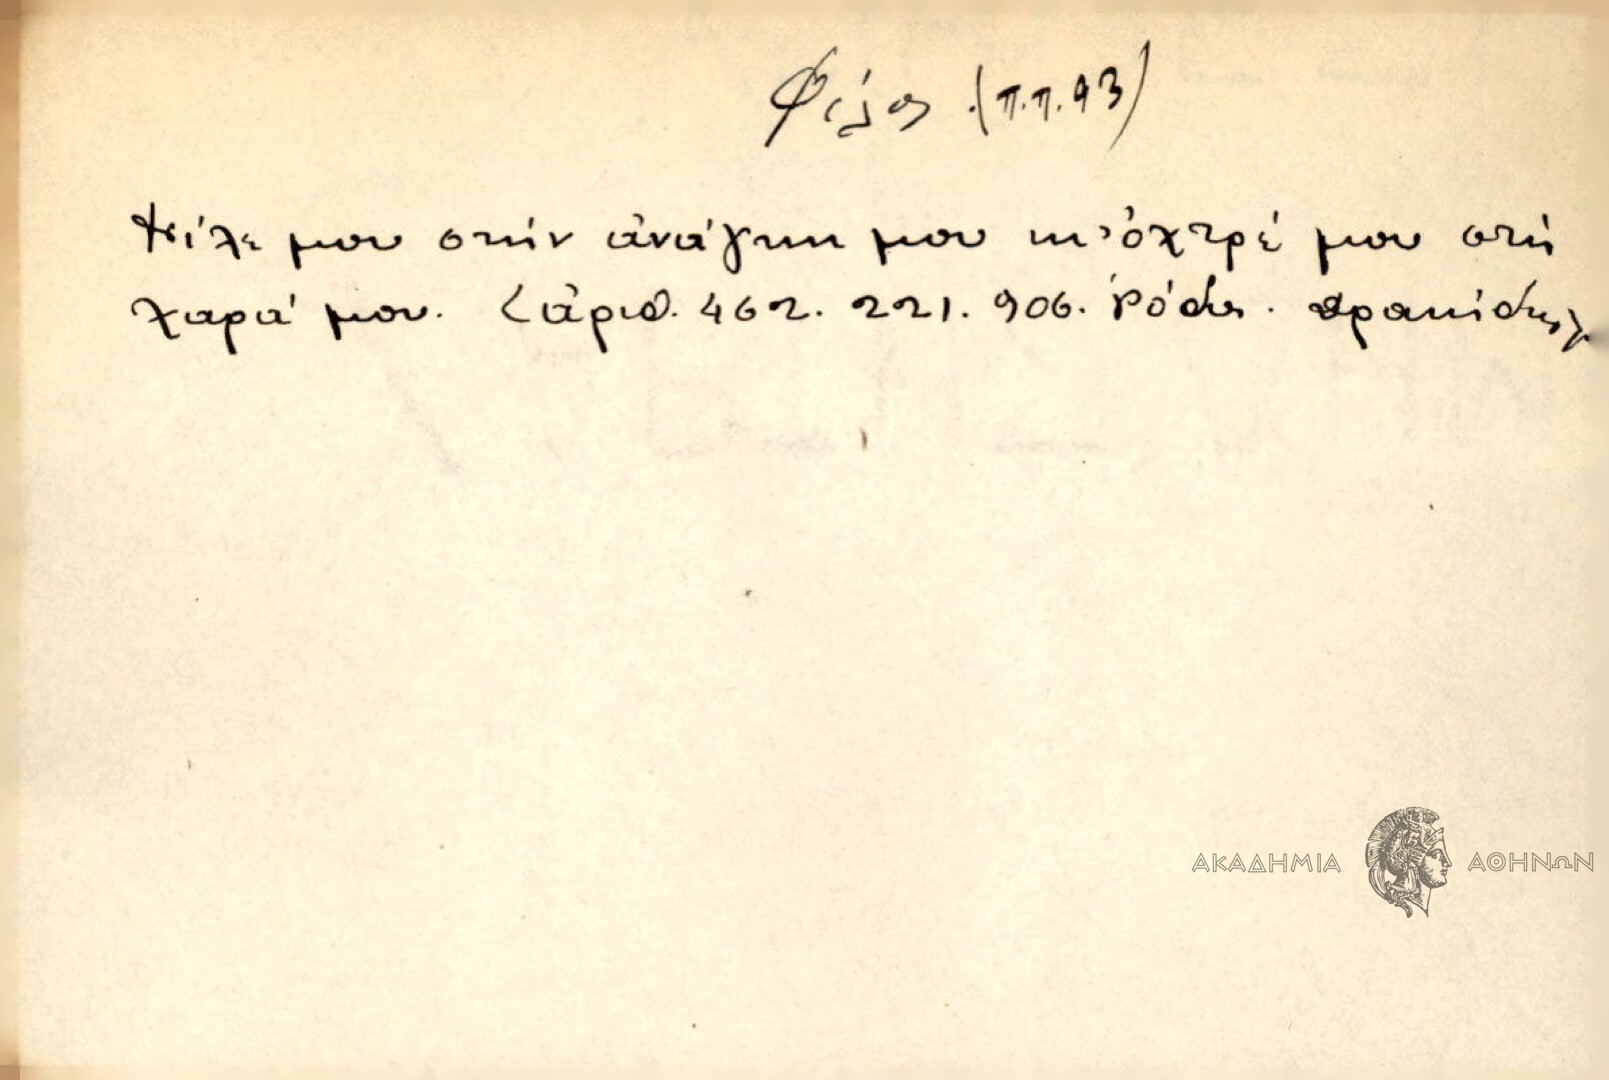 Φίλος (π.π.93)
Φίλε μου στήν ἀνάγκη μου κ' ὀχτρέ μου στή
χαρά μου. (ἀριθ. 462. 221. 906. Ῥόδος. Βρακίδης)
ΑΚΑΔΗΜΙΑ ΑΘΗΝΩΝ